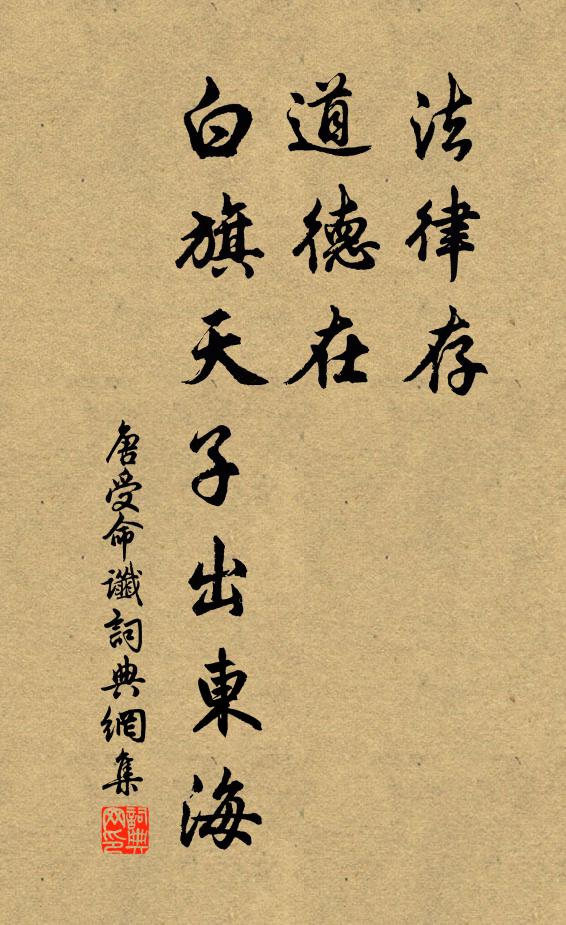 法律存
道德在
白旗天子出東海
唐受命讖詞典網集
詞典
网印